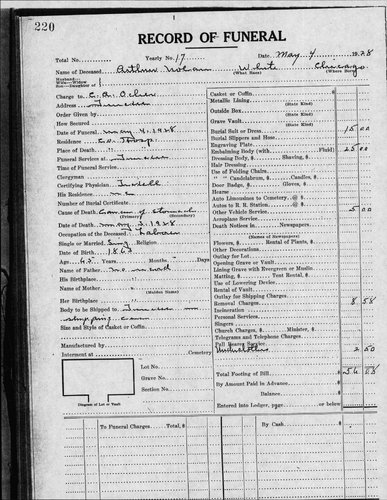 220
RECORD OF FUNERAL
Total No. Yearly No. 17 Date May 4 1928
Name of Deceased Arthur Nolan White Chicago
(What Race) (Where Born)
Husband—
Wife—Widow
Son—Daughter of
Charge to
Address
Order Given by
How Secured
Date of Funeral May 4. 1928
Residence
Place of Death
Funeral Services at
Time of Funeral
Clergyman
Certifying Physician
His Residence
Number of Burial Certificate
Cause of Death Cancer of stomach
(Primary) (Secondary)
Date of Death May 3, 1928
Occupation of the Deceased Laborer
Single or Married Sing Religion
Date of Birth 1863
Age 65 Years Months Days
Name of Father
His Birthplace
Name of Mother
(Maiden Name)
Her Birthplace
Body to be Shipped to
shipping case
Size and Style of Casket or Coffin
Manufactured by
Interment at Cemetery
Lot No.
Grave No.
Section No.
Diagram of Lot or Vault
Casket or Coffin
Metallic Lining
(State Kind)
Outside Box
(State Kind)
Grave Vault
(State Kind)
Burial Suit or Dress 15 00
Burial Slippers and Hose
Engraving Plate
Embalming Body (with Fluid) 25 00
Dressing Body, $ Shaving, $
Hair Dressing
Use of Folding Chairs
" " Candelabrum, $ Candles, $
Door Badge, $ Gloves, $
Hearse
Auto Limousines to Cemetery @ $
Autos to R. R. Station @ $
Other Vehicle Service
Aeroplane Service
Death Notices in Newspapers
(Names of Newspapers)
Flowers, $ Rental of Plants, $
Other Decorations
Outlay for Lot
Opening Grave or Vault
Lining Grave with Evergreen or Muslin
Matting, $ Tent Rental, $
Use of Lowering Device
Rental of Vault
Outlay for Shipping Charges
Removal Charges 8 58
Incineration
Personal Services
Singers
Church Charges, $ Minister, $
Telegrams and Telephone Charges
Pall Bearer Service
Underclothes 2 50
Total Footing of Bill $
By Amount Paid in Advance
Balance $
Entered into Ledger, page or below
To Funeral Charges Total, $ By Cash $